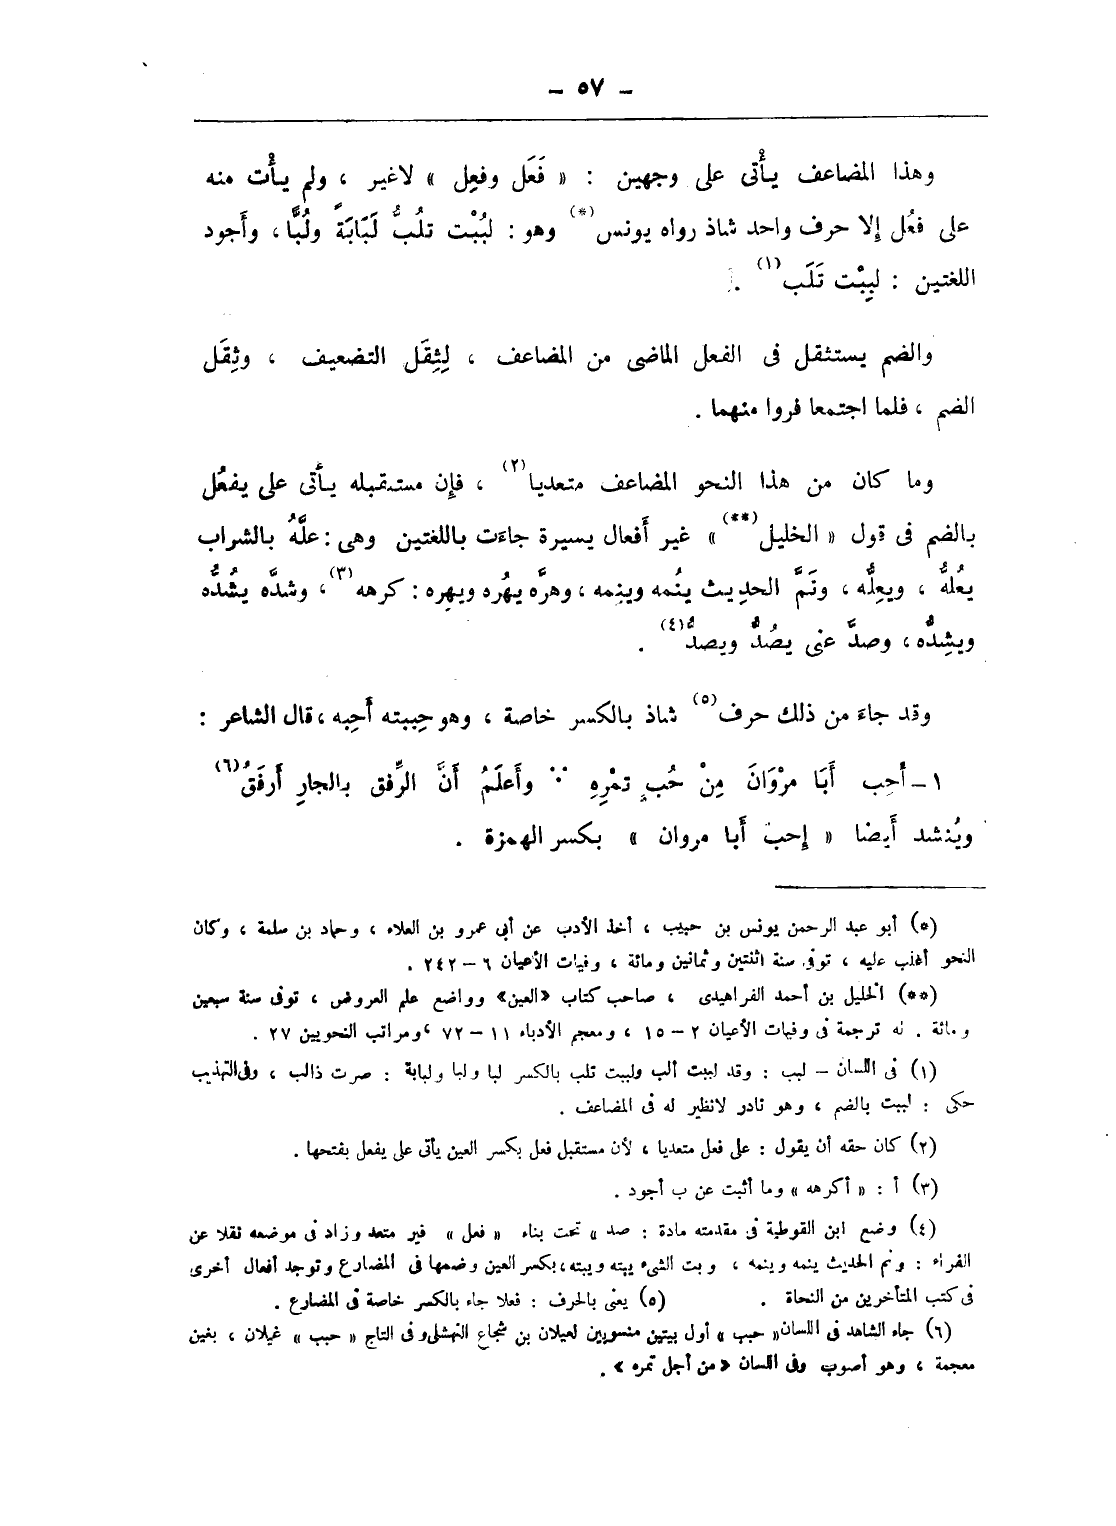 – ٥٧ –
وهذا المضاعف يأْتى على وجهين : « فَعَل وفعِل » لاغير ، ولم يأْت منه
على فعُل إلا حرف واحد شاذ رواه يونس(*) وهو : لبُبْت تلُبُّ لَبَابَةً ولُبًّا ، وأَجود
اللغتين : لبِبْت تَلَب(١) .
والضم يستثقل فى الفعل الماضى من المضاعف ، لِثِقَل التضعيف ، وثِقَل
الضم ، فلما اجتمعا فروا منهما .
وما كان من هذا النحو المضاعف متعديا(٢) ، فإن مستقبله يأْتى على يفعُل
بالضم فى قول « الخليل(**) » غير أَفعال يسيرة جاءَت باللغتين وهى : علَّهُ بالشراب
يعُلهُّ ، ويعِلُّه ، ونَمَّ الحديث ينُمه وينِمه ، وهرَّه يهُره ويهِره : كرهه(٣) ، وشدَّه يشُدُّه
ويشِدُّه ، وصدَّ عنى يصُدُّ ويصدُّ(٤) .
وقد جاءَ من ذلك حرف(٥) شاذ بالكسر خاصة ، وهو حِببته أَحِبه ، قال الشاعر :
١ – أَحِب أَبَا مرْوَانَ مِنْ حُبِ تمْرِهِ ∵ وأَعلَمُ أَنَّ الرِّفق بالجارِ أَرفَقُ(٦)
ويُنشد أَيضا « إِحبُ أَبا مروان » بكسر الهمزة .
(*) أبو عبد الرحمن يونس بن حبيب ، أخذ الأدب عن أبى عمرو بن العلاء ، وحماد بن سلمة ، وكان
النحو أغلب عليه ، توفى سنة اثنتين وثمانين ومائة ، وفيات الأعيان ٦ – ٢٤٢ .
(**) الخليل بن أحمد الفراهيدى ، صاحب كتاب «العين» وواضع علم العروض ، توفى سنة سبعين
ومائة . له ترجمة فى وفيات الأعيان ٢ – ١٥ ، ومعجم الأدباء ١١ – ٧٢ ، ومراتب النحويين ٢٧ .
(١) فى اللسان – لبب : وقد لببت ألب ولببت تلب بالكسر لبا ولبا ولبابة : صرت ذالب ، وفى التهذيب
حكى : لببت بالضم ، وهو نادر لانظير له فى المضاعف .
(٢) كان حقه أن يقول : على فعل متعديا ، لأن مستقبل فعل بكسر العين يأتى على يفعل بفتحها .
(٣) أ : « أكرهه » وما أثبت عن ب أجود .
(٤) وضع ابن القوطية فى مقدمته مادة : صد » تحت بناء « فعل » غير متعد وزاد فى موضعه نقلا عن
الفراء : ونم الحديث ينمه وينمه ، وبت الشىء يبته ويبته ، بكسر العين وضمها فى المضارع وتوجد أفعال أخرى
فى كتب المتأخرين من النحاة . (٥) يعنى بالحرف : فعلا جاء بالكسر خاصة فى المضارع .
(٦) جاء الشاهد فى اللسان« حبب » أول بيتين منسوبين لعيلان بن شجاع النهشلى وفى التاج « حبب » غيلان ، بغين
معجمة ، وهو أصوب وفى اللسان «من أجل تمره» .